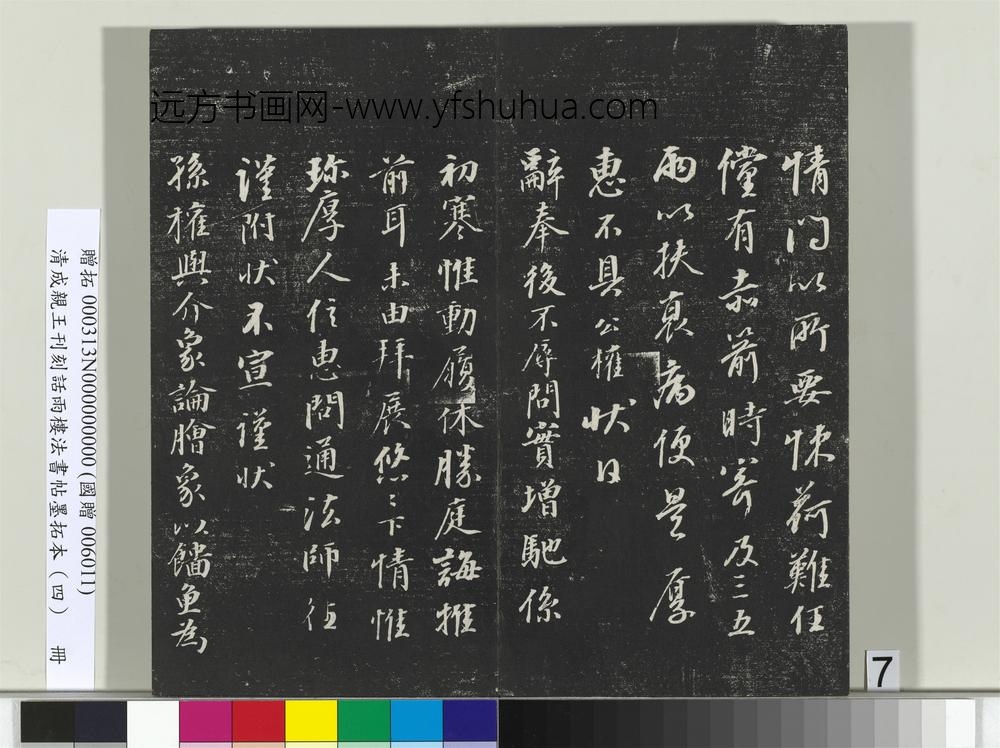 远方书画网-www.yfshuhua.com
情問以所要悚荷難任
儻有赤箭時寄及三五
兩以扶衰病便是厚
惠不具公權狀日
辭奉後不辱問實增馳係
初寒惟動履休勝庭誨惟
前耳未由拜展悠〻下情惟
珎厚人信惠問通法師往
謹附狀不宣謹狀
孫權與介象論膾象以鯔魚為
贈拓 000313N000000000 (國贈 006011)
清成親王刊刻話雨樓法書帖墨拓本(四) 冊
7